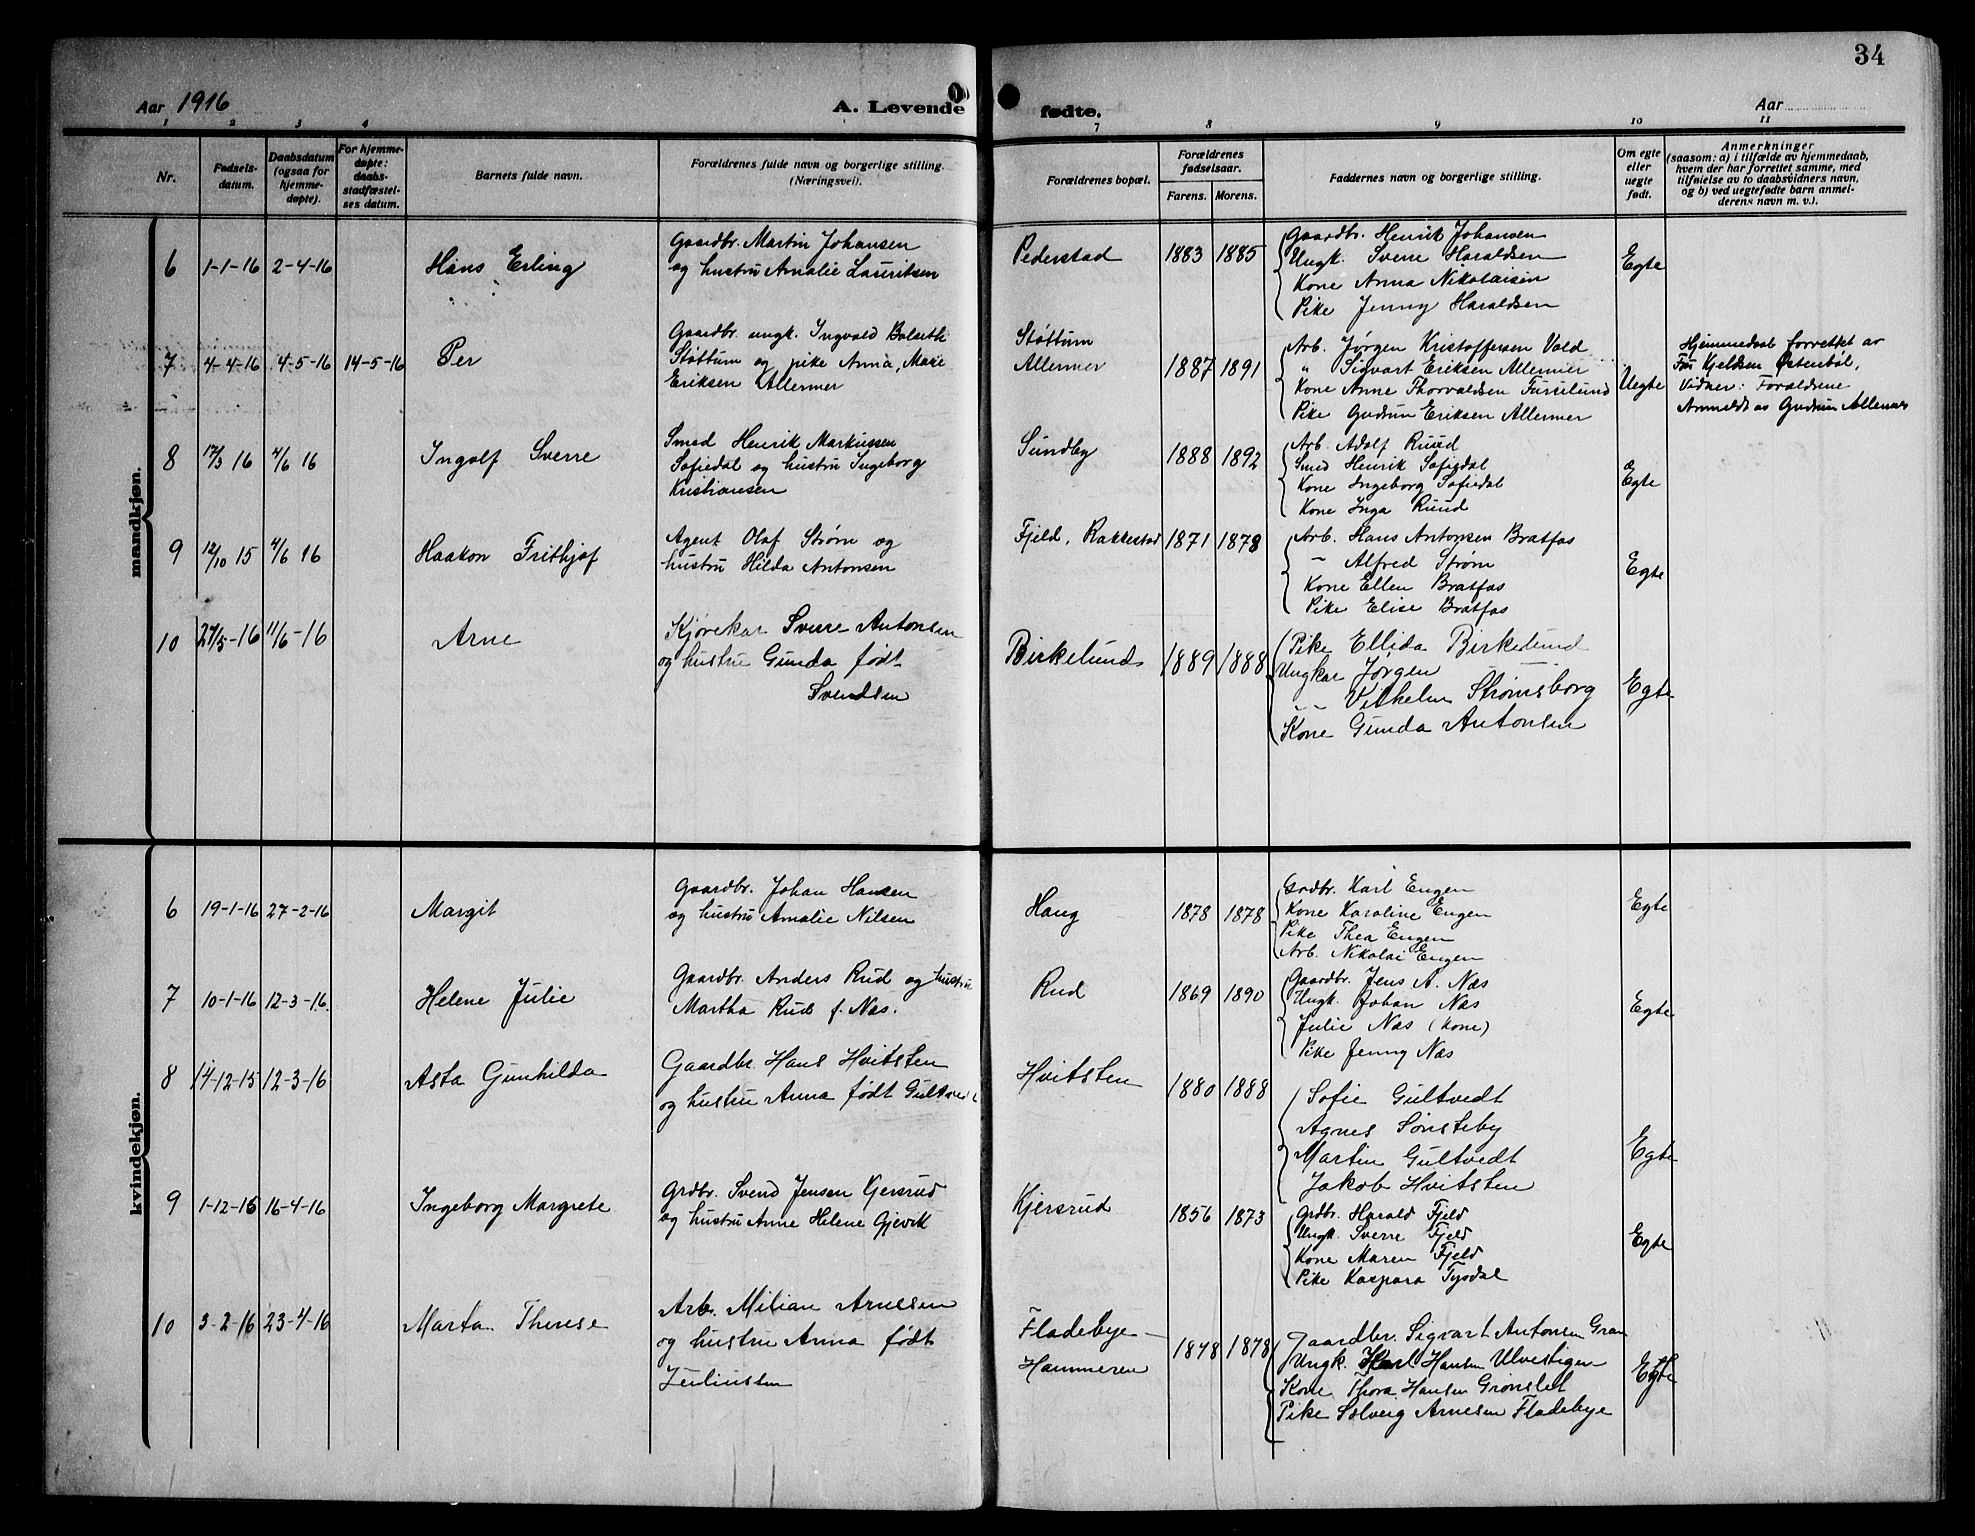 34
Aar 1916
A. Levende
fødte.
Aar
1 2 3 4
7 8 9 10 11
Nr.
Fødsels-
datum.
Daabsdatum
(ogsaa for
hjemme-
døpte).
For hjemme-
døpte:
daabs-
stadfæstel-
ses datum.
Barnets fulde navn.
Forældrenes fulde navn og borgerlige stilling.
(Næringsvei).
Forældrenes bopæl.
Forældrenes
fødselsaar.
Farens. Morens.
Faddernes navn og borgerlige stilling.
Om egte
eller
uegte
født.
Anmerkninger
(saasom: a) i tilfælde av hjemmedaab,
hvem der har forrettet samme, med
tilføielse av to daabsvidners navn,
og b) ved uegtefødte barn anmel-
derens navn m. v.).
mandkjøn.
6 1-1-16 2-4-16 Hans Erling
Gaardbr. Martin Johansen
og hustru Amalie Lauritsen
Pederstad 1883 1885
Gaardbr. Henrik Johansen
Ungk. Sverre Haraldsen
Kone Anna Nikolaisen
Pike Jenny Haraldsen
Egte
7 4-4-16 4-5-16 14-5-16 Per
Gaardbr. ungk. Ingvald Bolseth
Støttum og pike Anna, Marie
Eriksen Allermer
Støttum
Allermer
1887 1891
Arb. Jørgen Kristoffersen Vold
" Sigvart Eriksen Allermer
Kone Anne Thorvaldsen Furulund
Pike Gudrun Eriksen Allermer
Uegte
Hjemmedaab forrettet av
Fru Kjeldsen Østenbøl,
Vidner: Forældrene
Anmeldt av Gudrun Allermer
8 17/3 16 4/6 16 Ingolf Sverre
Smed Henrik Markussen
Sofiedal og hustru Ingeborg
Kristiansen
Sundby 1888 1892
Arb. Adolf Ruud
Smed Henrik Sofiedal
Kone Ingeborg Sofiedal
Kone Inga Ruud
Egte
9 12/10 15 4/6 16 Haakon Frithjof
Agent Olaf Strøm og
hustru Hilda Antonsen
Fjeld, Rakkestad 1871 1878
Arb. Hans Antonsen Bratfos
- Alfred Strøm
Kone Ellen Bratfos
Pike Elise Bratfos
Egte
10 27/5-16 11/6-16 Arne
Kjørekar Sverre Antonsen
og hustru Gunda født
Svendsen
Birkelund 1889 1888
Pike Ellida Birkelund
Ungkar Jørgen
- - Vilhelm Strømsborg
Kone Gunda Antonsen
Egte
kvindekjøn.
6 19-1-16 27-2-16 Margit
Gaardbr. Johan Hansen
og hustru Amalie Nilsen
Haug 1878 1878
Grdbr. Karl Engen
Kone Karoline Engen
Pike Thea Engen
Arb. Nikolai Engen
Egte
7 10-1-16 12-3-16. Helene Julie
Gaardbr. Anders Rud og hustru
Martha Rud f. Næs.
Rud 1869 1890
Gaardbr. Jens A. Næs
Ungk. Johan Næs
Julie Næs (kone)
Pike Jenny Næs
Egte
8 14-12-15 12-3-16 Asta Gunhilda
Gaardbr. Hans Hvitsten
og hustru Anna født Gultvedt
Hvitsten 1880 1888
Sofie Gultvedt
Agnes Sønsteby
Martin Gultvedt
Jakob Hvitsten
Egte
9 1-12-15 16-4-16 Ingeborg Margrete
Grdbr. Svend Jensen Kjersrud
og hustru Anne Helene Gjevik
Kjersrud 1856 1873
Grdbr. Harald Fjeld
Ungk. Sverre Fjeld
Kone Maren Fjeld
Pike Kaspara Tysdal
Egte
10 3-2-16 23-4-16 Marta Therese
Arb. Milian Arnesen
og hustru Anna født
Juliussen
Fladebye-
Hammeren
1848 1878
Gaardbr. Sigvart Antonsen Gran
Ungk. Karl Hansen Ulvestigen
Kone Thora Hansen Grønslet
Pike Solveig Arnesen Fladebye
Egte